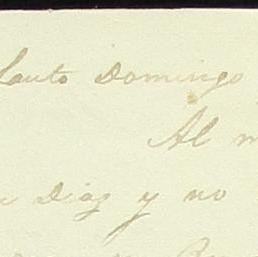 Santo Domingo
Al m
n Diaz y no